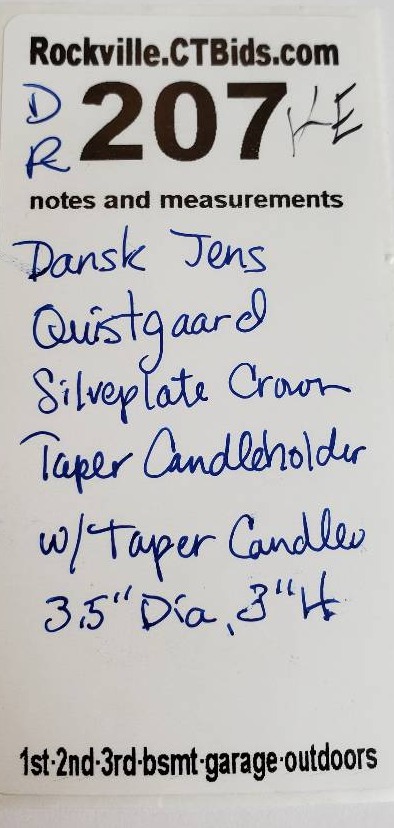 Rockville.CTBids.com
DR 207 KE
notes and measurements
Dansk Jens
Quistgaard
Silveplate Crown
Taper Candleholder
w/Taper Candles
3.5" Dia, 3" H
1st·2nd·3rd·bsmt·garage·outdoors